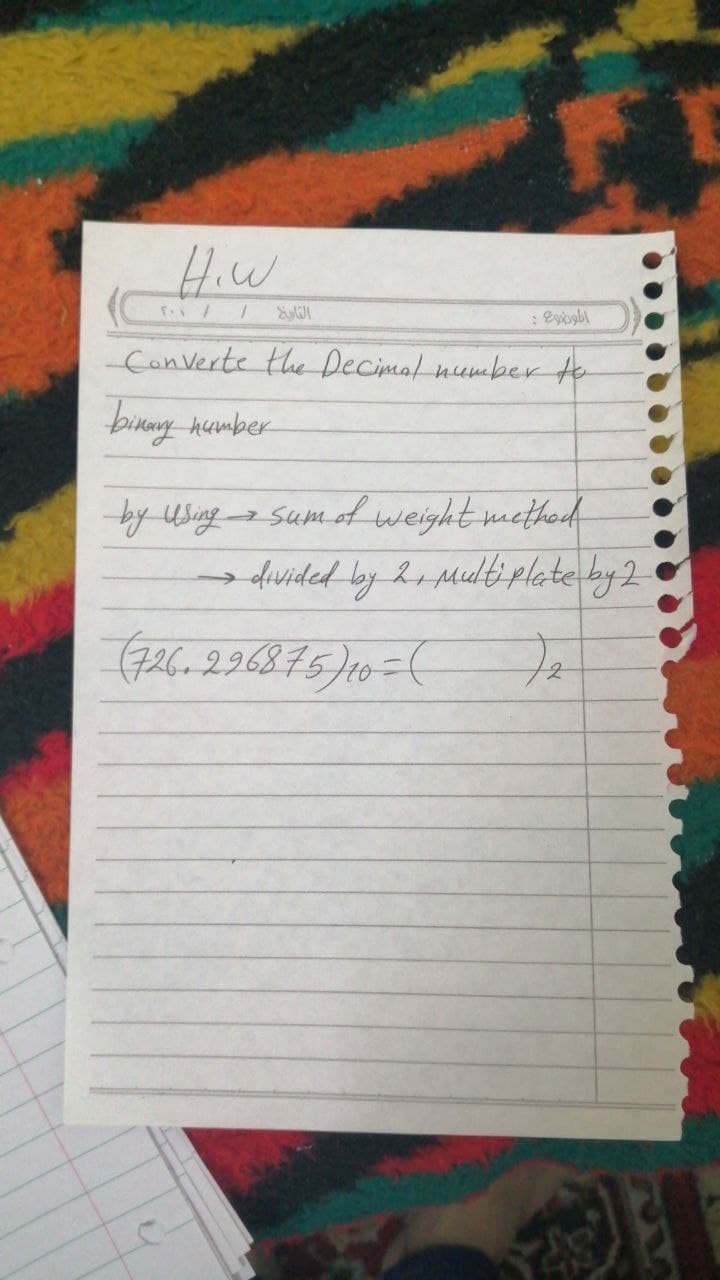 H.W
التاريخ / / ٢٠٠
الموضوع :
Converte the Decimal number to
binary number
by using → sum of weight method
→ divided by 2, Multiplate by 2
(726.296875)10 = ( )2